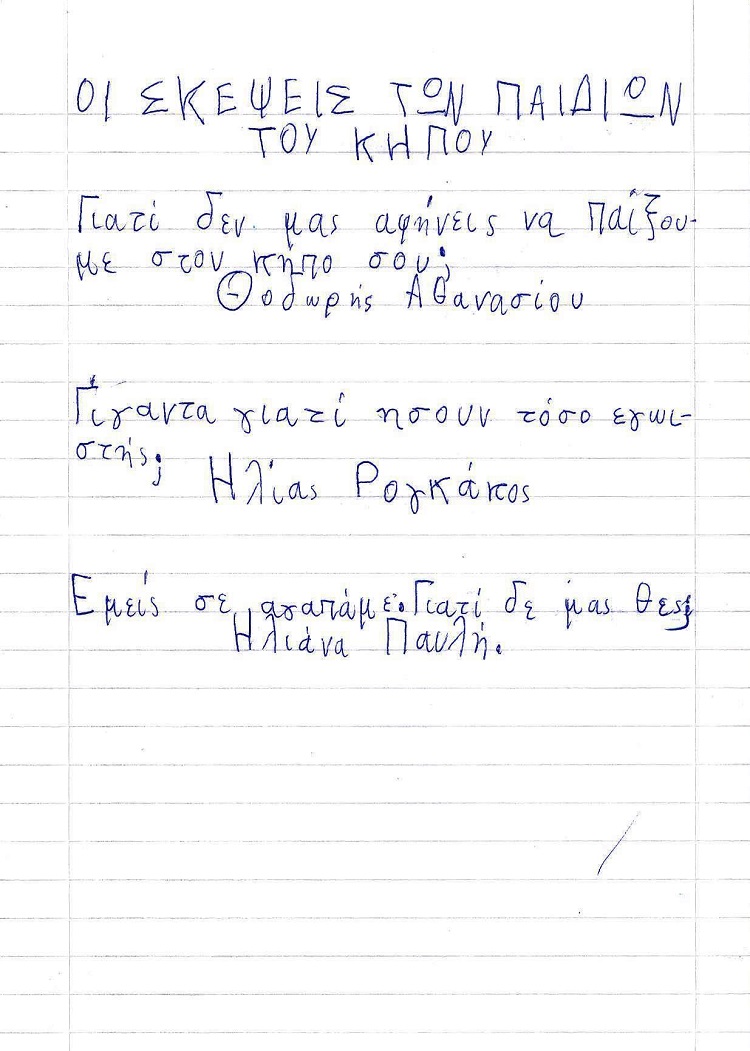 ΟΙ ΣΚΕΨΕΙΣ ΤΩΝ ΠΑΙΔΙΩΝ
ΤΟΥ ΚΗΠΟΥ
Γιατί δεν μας αφήνεις να παίξου-
με στον κήπο σου;
Θοδωρής Αθανασίου
Γίγαντα γιατί ησουν τόσο εγωι-
στής;
Ηλίας Ρογκάκος
Εμείς σε αγαπάμε. Γιατί δε μας θες;
Ηλιάνα Παυλή.